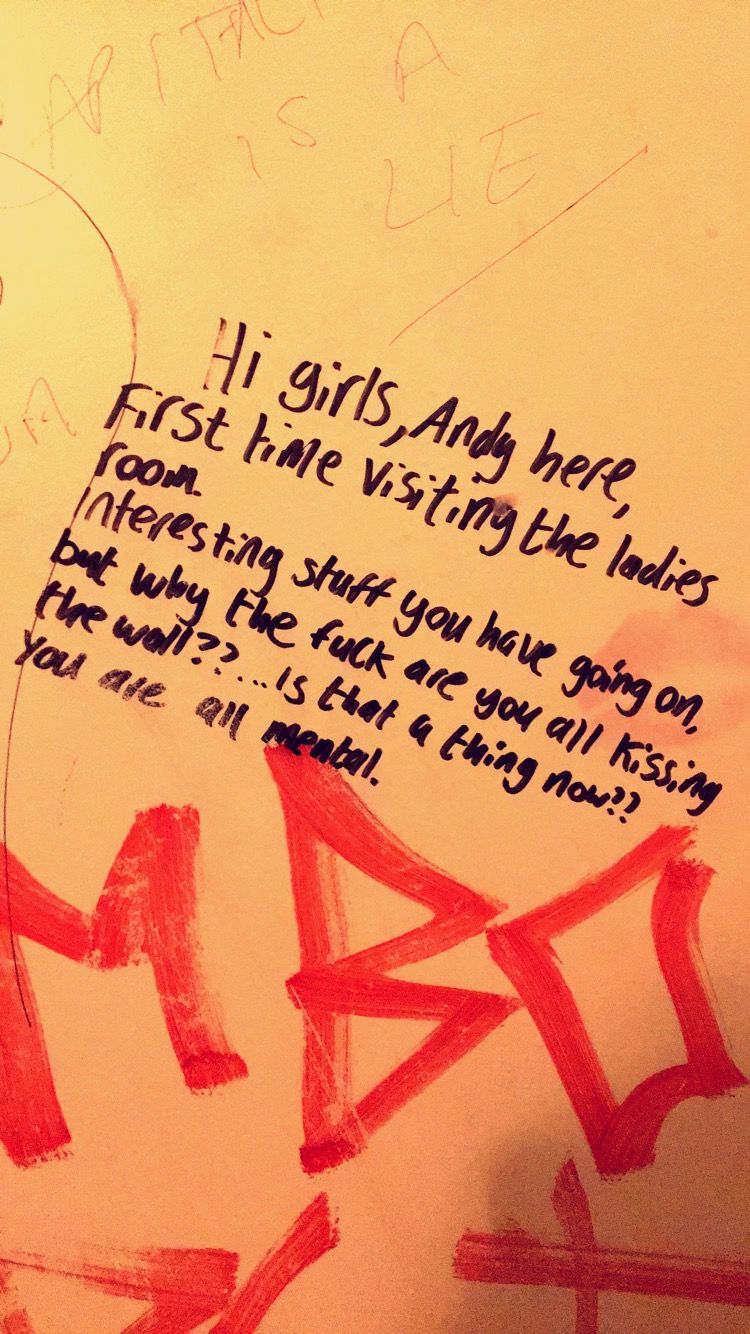 IS A
LIE
Hi girls, Andy here,
First time visiting the ladies
room.
Interesting stuff you have going on,
but why the fuck are you all kissing
the wall??...Is that a thing now??
You are all mental.
MBO